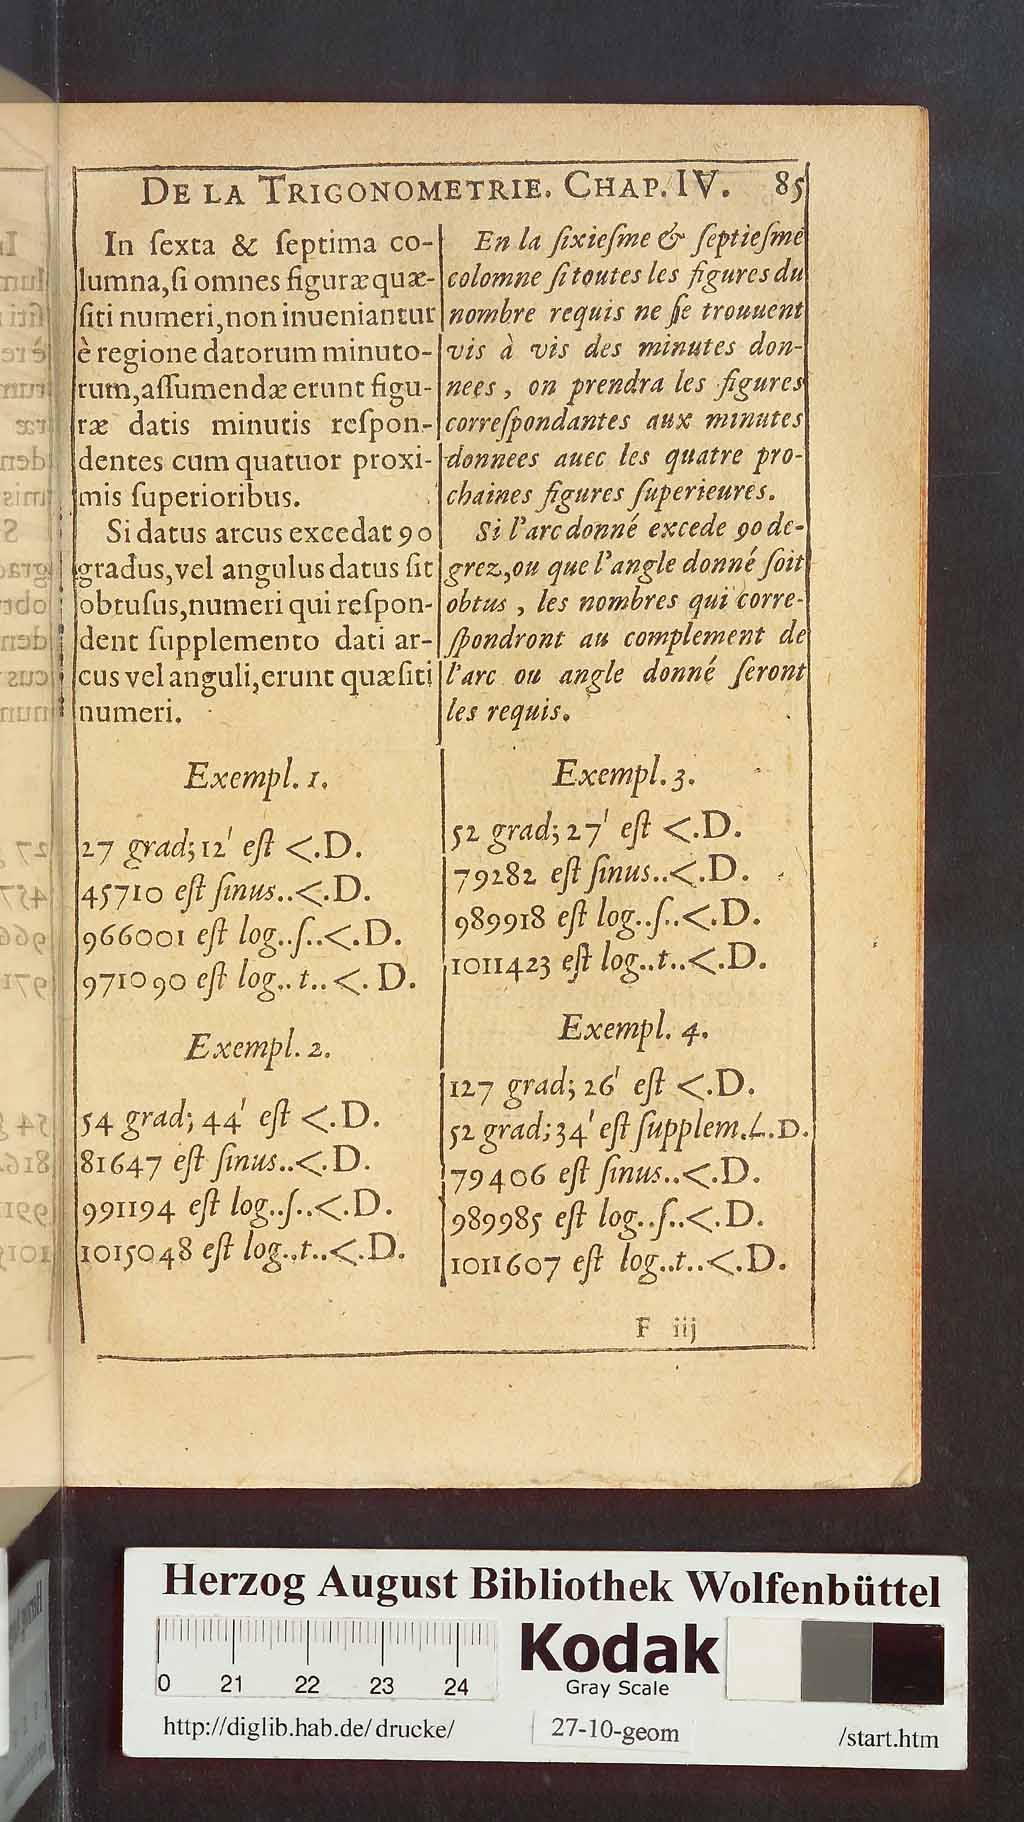 DE LA TRIGONOMETRIE. CHAP. IV. 85
In ſexta & ſeptima co-
lumna, ſi omnes figuræ quæ-
ſiti numeri, non inueniantur
è regione datorum minuto-
rum, aſſumendæ erunt figu-
ræ datis minutis reſpon-
dentes cum quatuor proxi-
mis ſuperioribus.
Si datus arcus excedat 90
gradus, vel angulus datus ſit
obtuſus, numeri qui reſpon-
dent ſupplemento dati ar-
cus vel anguli, erunt quæſiti
numeri.
Exempl. 1.
27 grad; 12' eſt <.D.
45710 eſt ſinus..<.D.
966001 eſt log..ſ..<.D.
971090 eſt log..t..<.D.
Exempl. 2.
54 grad; 44' eſt <.D.
81647 eſt ſinus..<.D.
991194 eſt log..ſ..<.D.
1015048 eſt log..t..<.D.
En la ſixieſme & ſeptieſme
colomne ſi toutes les figures du
nombre requis ne ſe trouuent
vis à vis des minutes don-
nees, on prendra les figures
correſpondantes aux minutes
donnees auec les quatre pro-
chaines figures ſuperieures.
Si l'arc donné excede 90 de-
grez, ou que l'angle donné ſoit
obtus, les nombres qui corre-
ſpondront au complement de
l'arc ou angle donné ſeront
les requis.
Exempl. 3.
52 grad; 27' eſt <.D.
79282 eſt ſinus..<.D.
989918 eſt log..ſ..<.D.
1011423 eſt log..t..<.D.
Exempl. 4.
127 grad; 26' eſt <.D.
52 grad; 34' eſt ſupplem.<.D.
79406 eſt ſinus..<.D.
989985 eſt log..ſ..<.D.
1011607 eſt log..t..<.D.
F iij
Herzog August Bibliothek Wolfenbüttel
0 21 22 23 24
Kodak
Gray Scale
http://diglib.hab.de/drucke/ 27-10-geom /start.htm